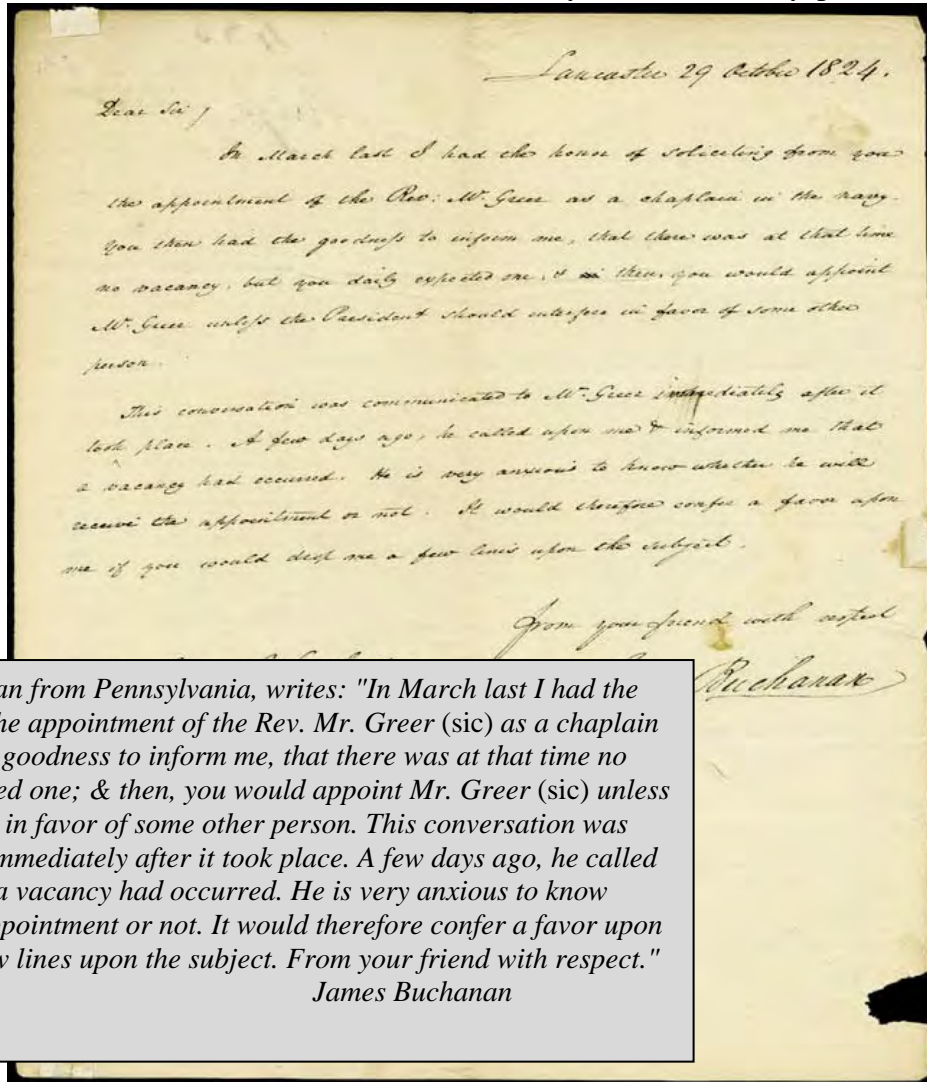 Lancaster 29 October 1824.
Dear Sir/
In March last I had the honor of soliciting from you
the appointment of the Rev: Mr. Greer as a chaplain in the navy.
You then had the goodness to inform me, that there was at that time
no vacancy, but you daily expected one, & then, you would appoint
Mr. Greer unless the President should interfere in favor of some other
person.
This conversation was communicated to Mr. Greer immediately after it
took place. A few days ago, he called upon me & informed me that
a vacancy had occurred. He is very anxious to know whether he will
receive the appointment or not. It would therefore confer a favor upon
me if you would drop me a few lines upon the subject.
from your friend with respect
Buchanan
an from Pennsylvania, writes: "In March last I had the
he appointment of the Rev. Mr. Greer (sic) as a chaplain
goodness to inform me, that there was at that time no
ed one; & then, you would appoint Mr. Greer (sic) unless
in favor of some other person. This conversation was
mmediately after it took place. A few days ago, he called
a vacancy had occurred. He is very anxious to know
ppointment or not. It would therefore confer a favor upon
w lines upon the subject. From your friend with respect."
James Buchanan